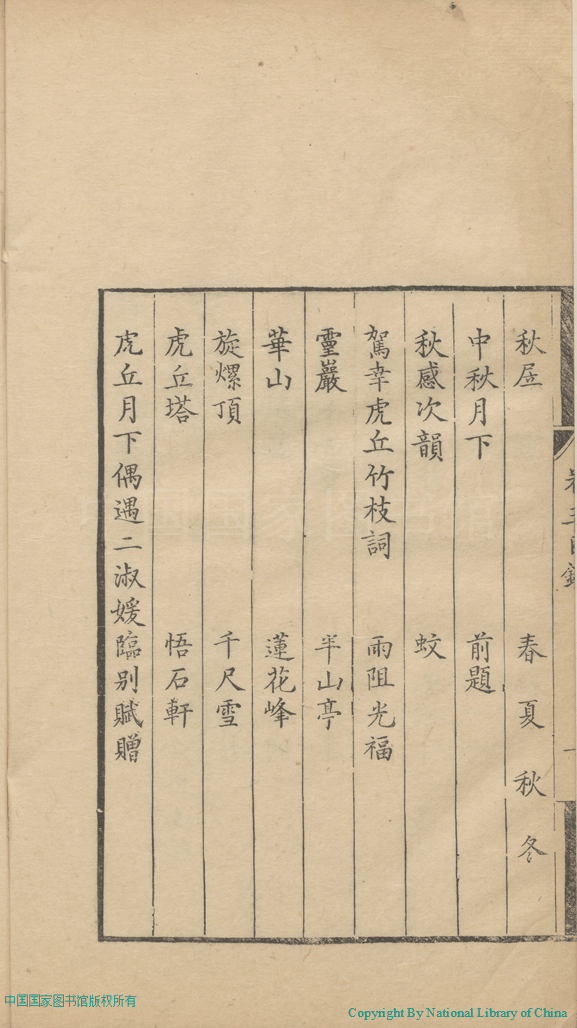 秋㞐　春 夏 秋 冬
中秋月下　前題
秋感次韻　蚊
駕幸虎丘竹枝詞　雨阻光福
靈巖　半山亭
華山　蓮花峰
旋螺頂　千尺雪
虎丘塔　悟石軒
虎丘月下偶遇二淑媛臨別賦贈
中国国家图书馆版权所有
Copyright By National Library of China